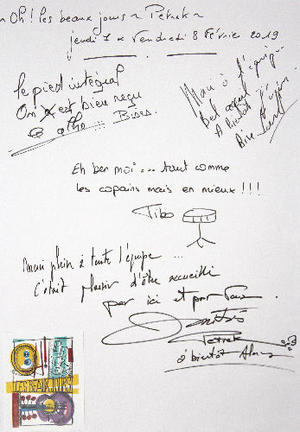 ~ Oh! les beaux jours ~ Pétrek ~
jeudi 7 & Vendredi 8 Février 2019
le pied intégral
On est bien reçu
Bises.
Merci à l'équipe
Bel accueil
A bientôt
Eh ben moi... tout comme
les copains mais en mieux!!!
Tibo
Merci plein à toute l'équipe...
C'était plaisir d'être accueilli
par ici et par vous.
Pétrek
à bientôt Alors
LES BEAUX JOURS